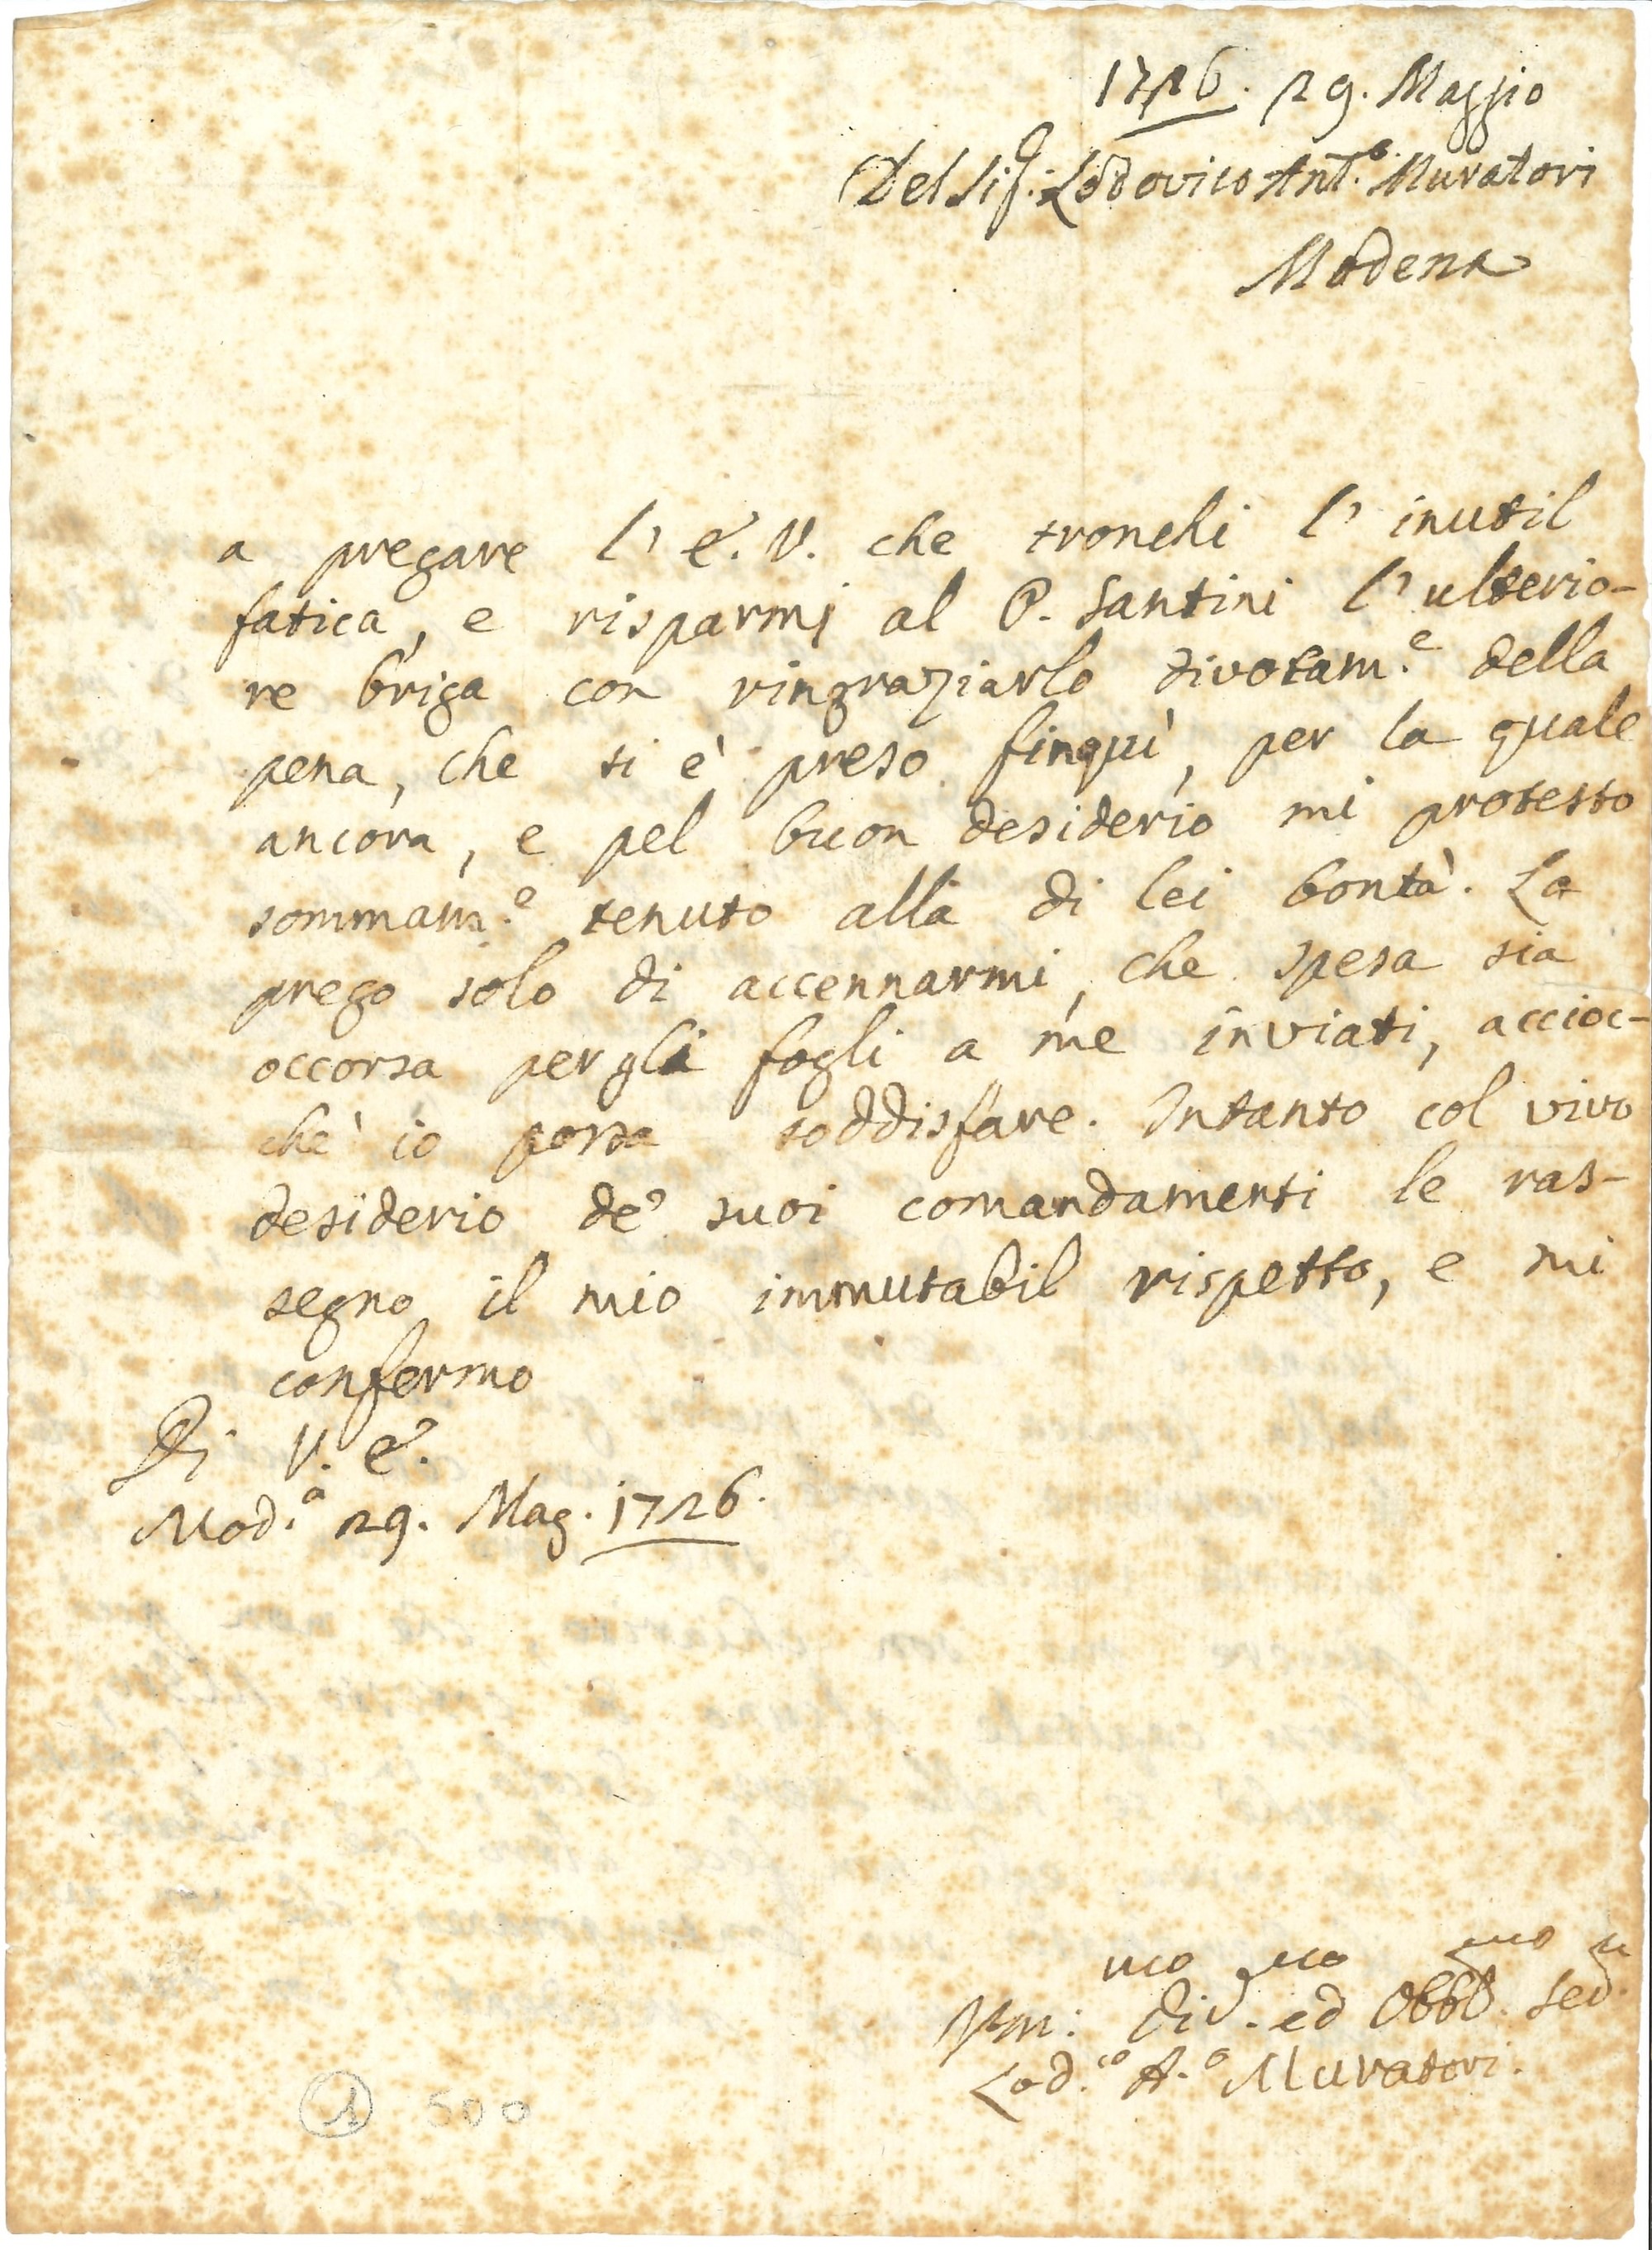 1726. 29. Maggio
Del Sig.r Lodovico Ant.o Muratori
Modena
a pregare l' E. V. che tronchi l' inutil
fatica, e risparmj al P. Santini l' ulterio-
re briga con ringraziarlo divotam.e della
pena, che si è preso finquì, per la quale
ancora, e pel buon desiderio mi protesto
sommam.e tenuto alla di lei bontà. La
prego solo di accennarmi, che spesa sia
occorsa per gli fogli a me inviati, accioc-
chè io possa soddisfare. Intanto col vivo
desiderio de' suoi comandamenti le ras-
segno il mio immutabil rispetto, e mi
confermo
Di V. E.
Mod.a 29. Mag. 1726.
Um:mo Div.mo ed Obbl.mo Ser.
Lod.co A.o Muratori.
1 500